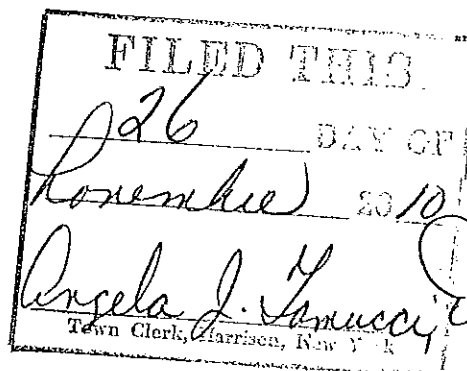 FILED THIS
26 DAY OF
November 2010
Angela J. Tamucci
Town Clerk, Harrison, New York